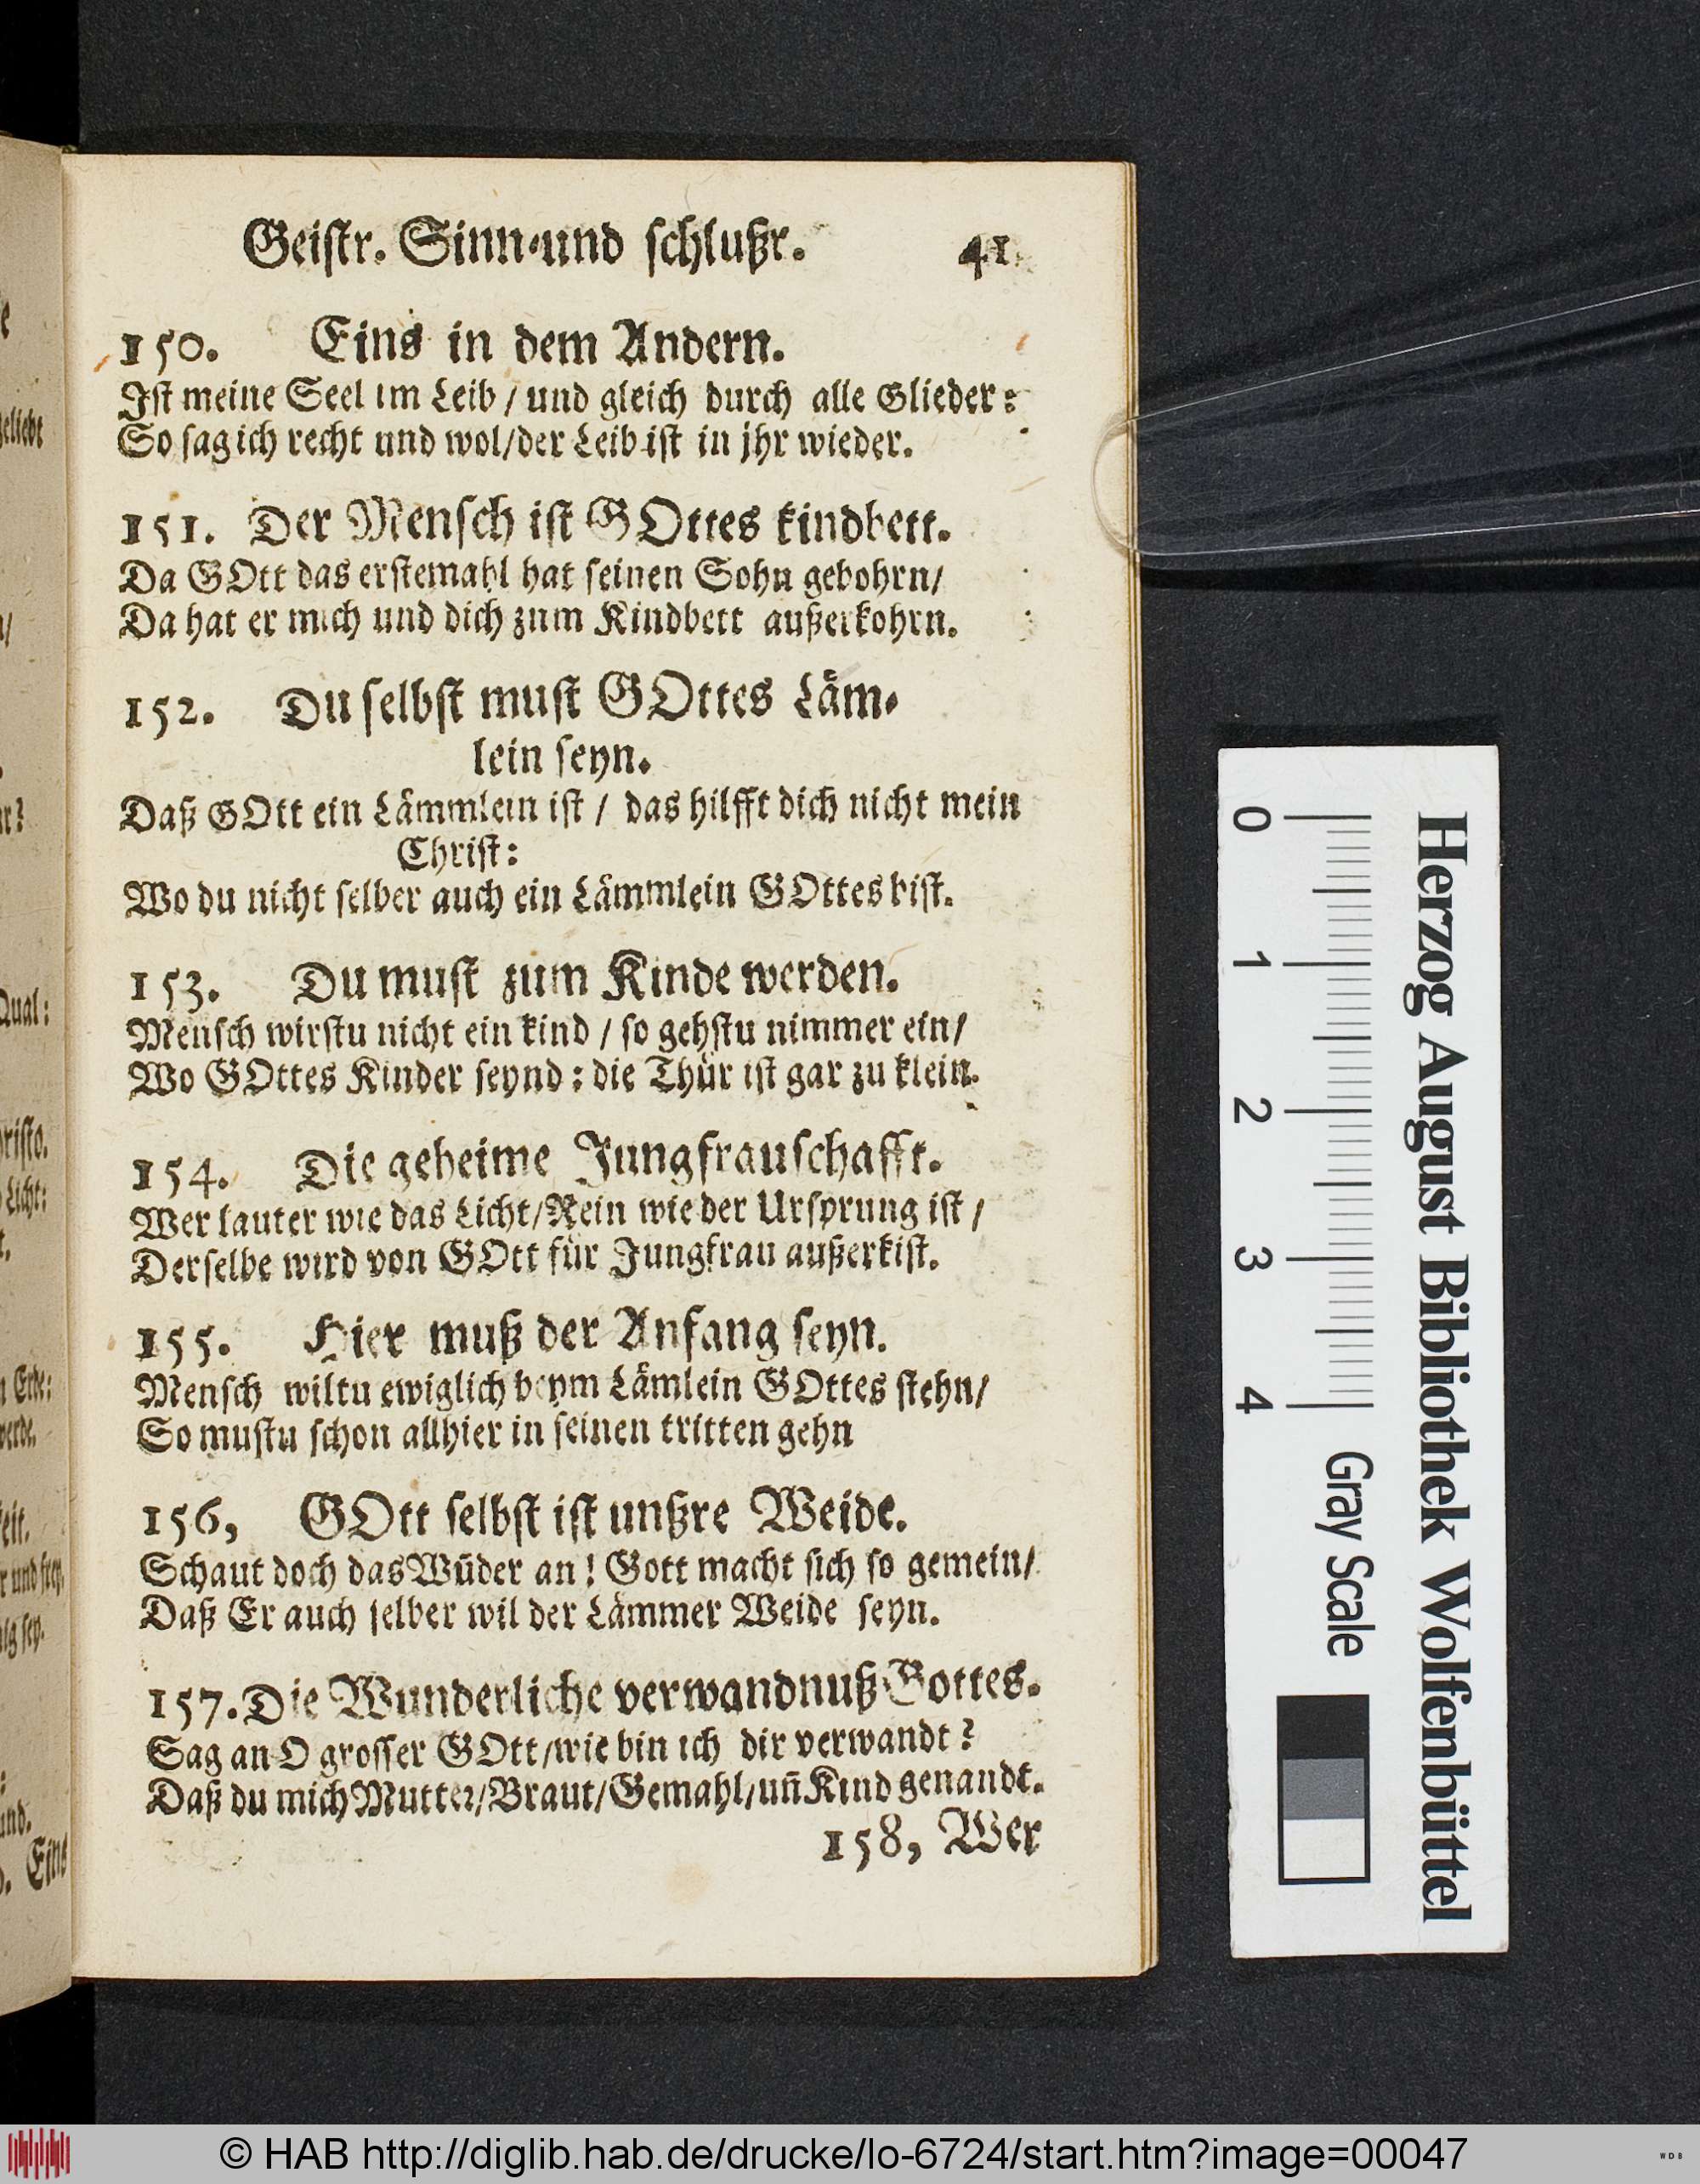 Geistr. Sinn-und schlußr. 41.
150. Eins in dem Andern.
Ist meine Seel im Leib / und gleich durch alle Glieder:
So sag ich recht und wol/der Leib ist in jhr wieder.
151. Der Mensch ist GOttes kindbett.
Da GOtt das erstemahl hat seinen Sohn gebohrn/
Da hat er mich und dich zum Kindbett außerkohrn.
152. Du selbst must GOttes Läm-
lein seyn.
Daß GOtt ein Lämmlein ist / das hilfft dich nicht mein
Christ:
Wo du nicht selber auch ein Lämmlein GOttes bist.
153. Du must zum Kinde werden.
Mensch wirstu nicht ein kind / so gehstu nimmer ein/
Wo GOttes Kinder seynd: die Thür ist gar zu klein.
154. Die geheime Jungfrauschafft.
Wer lauter wie das Licht/Rein wie der Ursprung ist /
Derselbe wird von GOtt für Jungfrau außerkist.
155. Hier muß der Anfang seyn.
Mensch wiltu ewiglich beym Lämlein GOttes stehn/
So mustu schon allhier in seinen tritten gehn
156, GOtt selbst ist unßre Weide.
Schaut doch das Wūder an! Gott macht sich so gemein/
Daß Er auch selber wil der Lämmer Weide seyn.
157. Die Wunderliche verwandnuß Gottes.
Sag an O grosser GOtt/wie bin ich dir verwandt?
Daß du mich Mutter/Braut/Gemahl/uñ Kind genandt.
158, Wer
geliebt
Qual:
Licht:
n Erde:
werde.
und sey.
Eins
Herzog August Bibliothek Wolfenbüttel
0 1 2 3 4 Gray Scale
© HAB http://diglib.hab.de/drucke/lo-6724/start.htm?image=00047
WDB